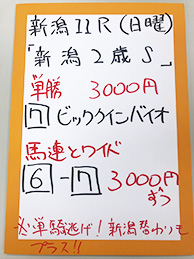 新潟11R(日曜)
「新潟2歳S」
単勝 3000円
7 ビッククインバイオ
馬連とワイド
6-7 3000円
ずつ
必単騎逃げ!新潟替わりも
プラス!!